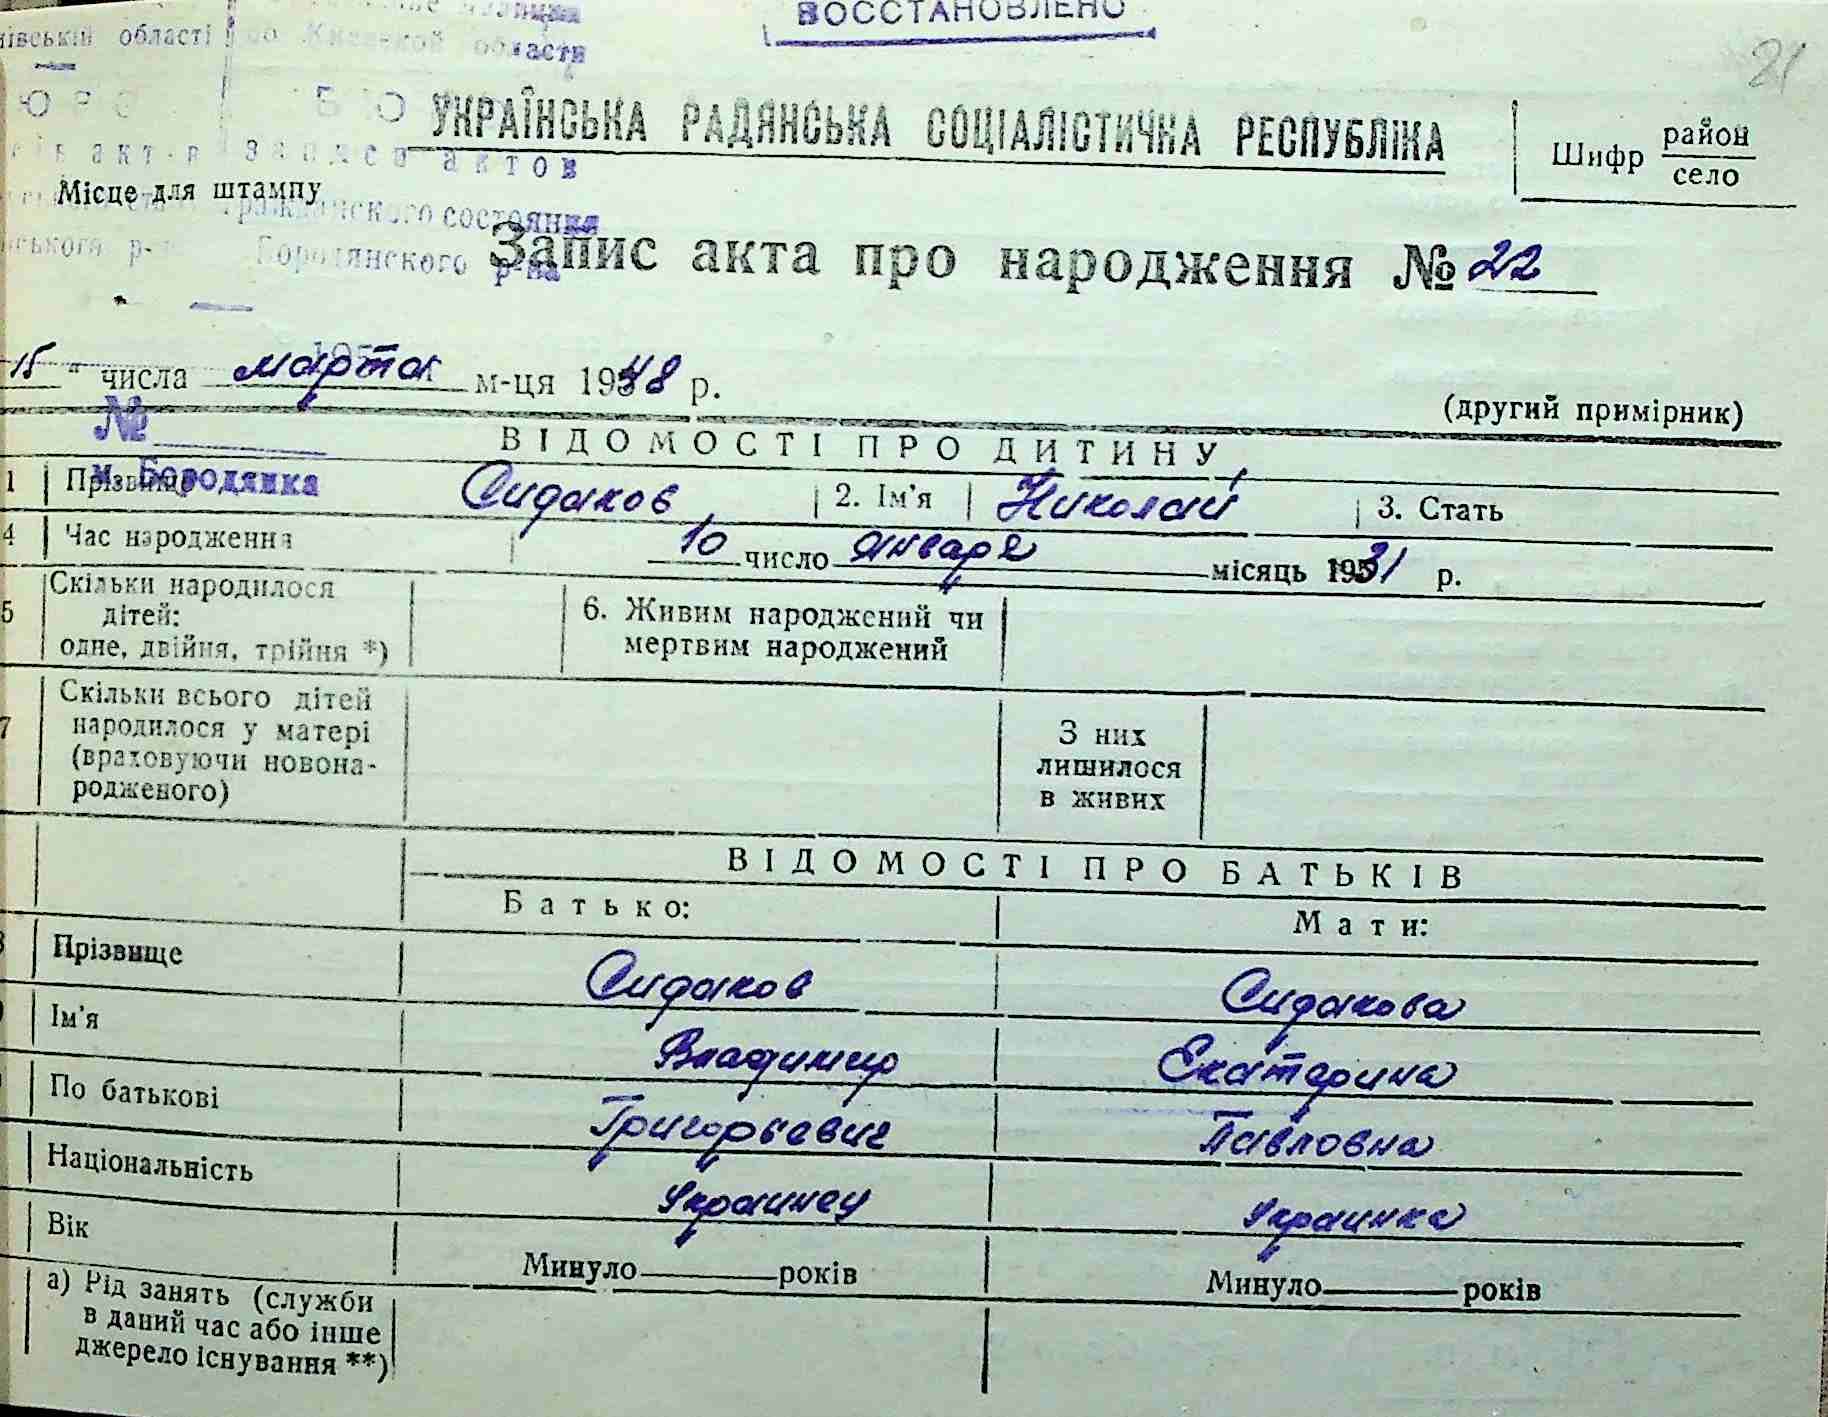 ВОССТАНОВЛЕНО
21
області Киевской области
УКРАЇНСЬКА РАДЯНСЬКА СОЦІАЛІСТИЧНА РЕСПУБЛІКА
Шифр район
село
записи актов
Місце для штампу
гражданского состояния
Бородянского р-на
Запис акта про народження № 22
15 " числа марта м-ця 1948 р.
(другий примірник)
№
ВІДОМОСТІ ПРО ДИТИНУ
м. Бородянка
1 Прізвище Сидаков 2. Ім'я Николай 3. Стать
4 Час народження 10 число января місяць 1931 р.
5 Скільки народилося дітей: одне, двійня, трійня *) 6. Живим народжений чи мертвим народжений
7 Скільки всього дітей народилося у матері (враховуючи новонародженого) З них лишилося в живих
ВІДОМОСТІ ПРО БАТЬКІВ
Батько: Мати:
Прізвище Сидаков Сидакова
Ім'я Владимир Екатерина
По батькові Григорьевич Павловна
Національність Украинец Украинка
Вік Минуло років Минуло років
а) Рід занять (служби
в даний час або інше
джерело існування **)